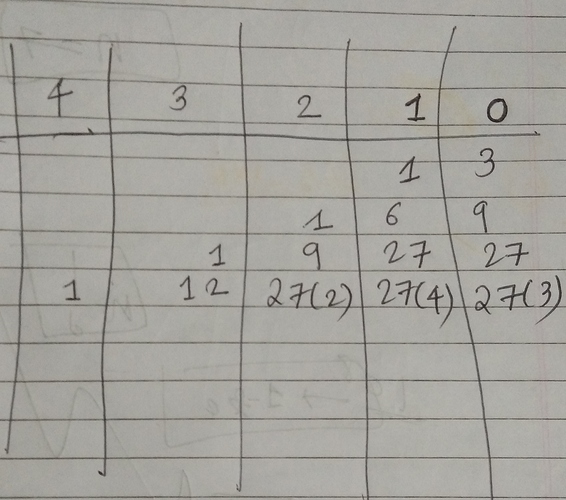 4 3 2 1 0
1 3
1 6 9
1 9 27 27
1 12 27(2) 27(4) 27(3)